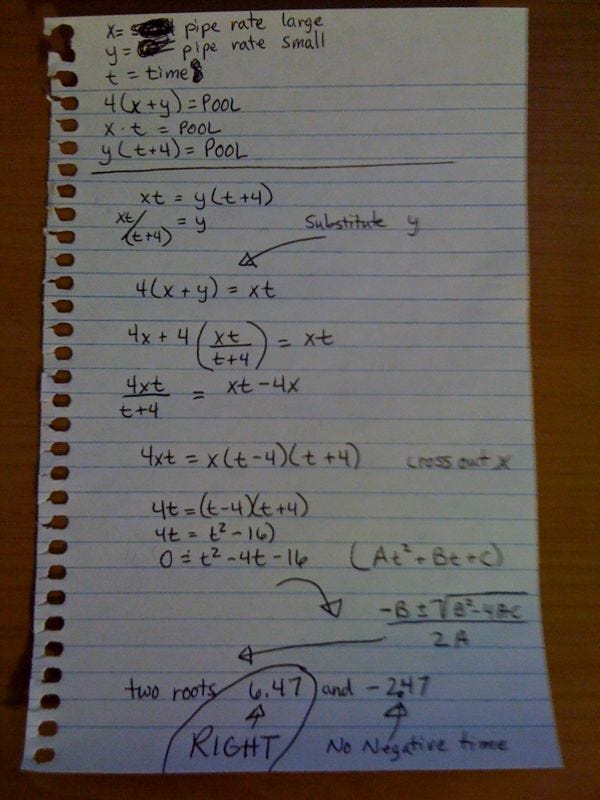 x= pipe rate large
y= pipe rate small
t = time
4(x+y)=POOL
x·t = POOL
y(t+4) = POOL
xt = y(t+4)
xt/(t+4) = y
Substitute y
4(x+y) = xt
4x + 4(xt/t+4) = xt
4xt/t+4 = xt-4x
4xt = x(t-4)(t+4) cross out x
4t=(t-4)(t+4)
4t = t²-16)
0 = t²-4t-16 (At²+Bt+C)
-B±√B²-4AC/2A
two roots 6.47 and -2.47
RIGHT No Negative time